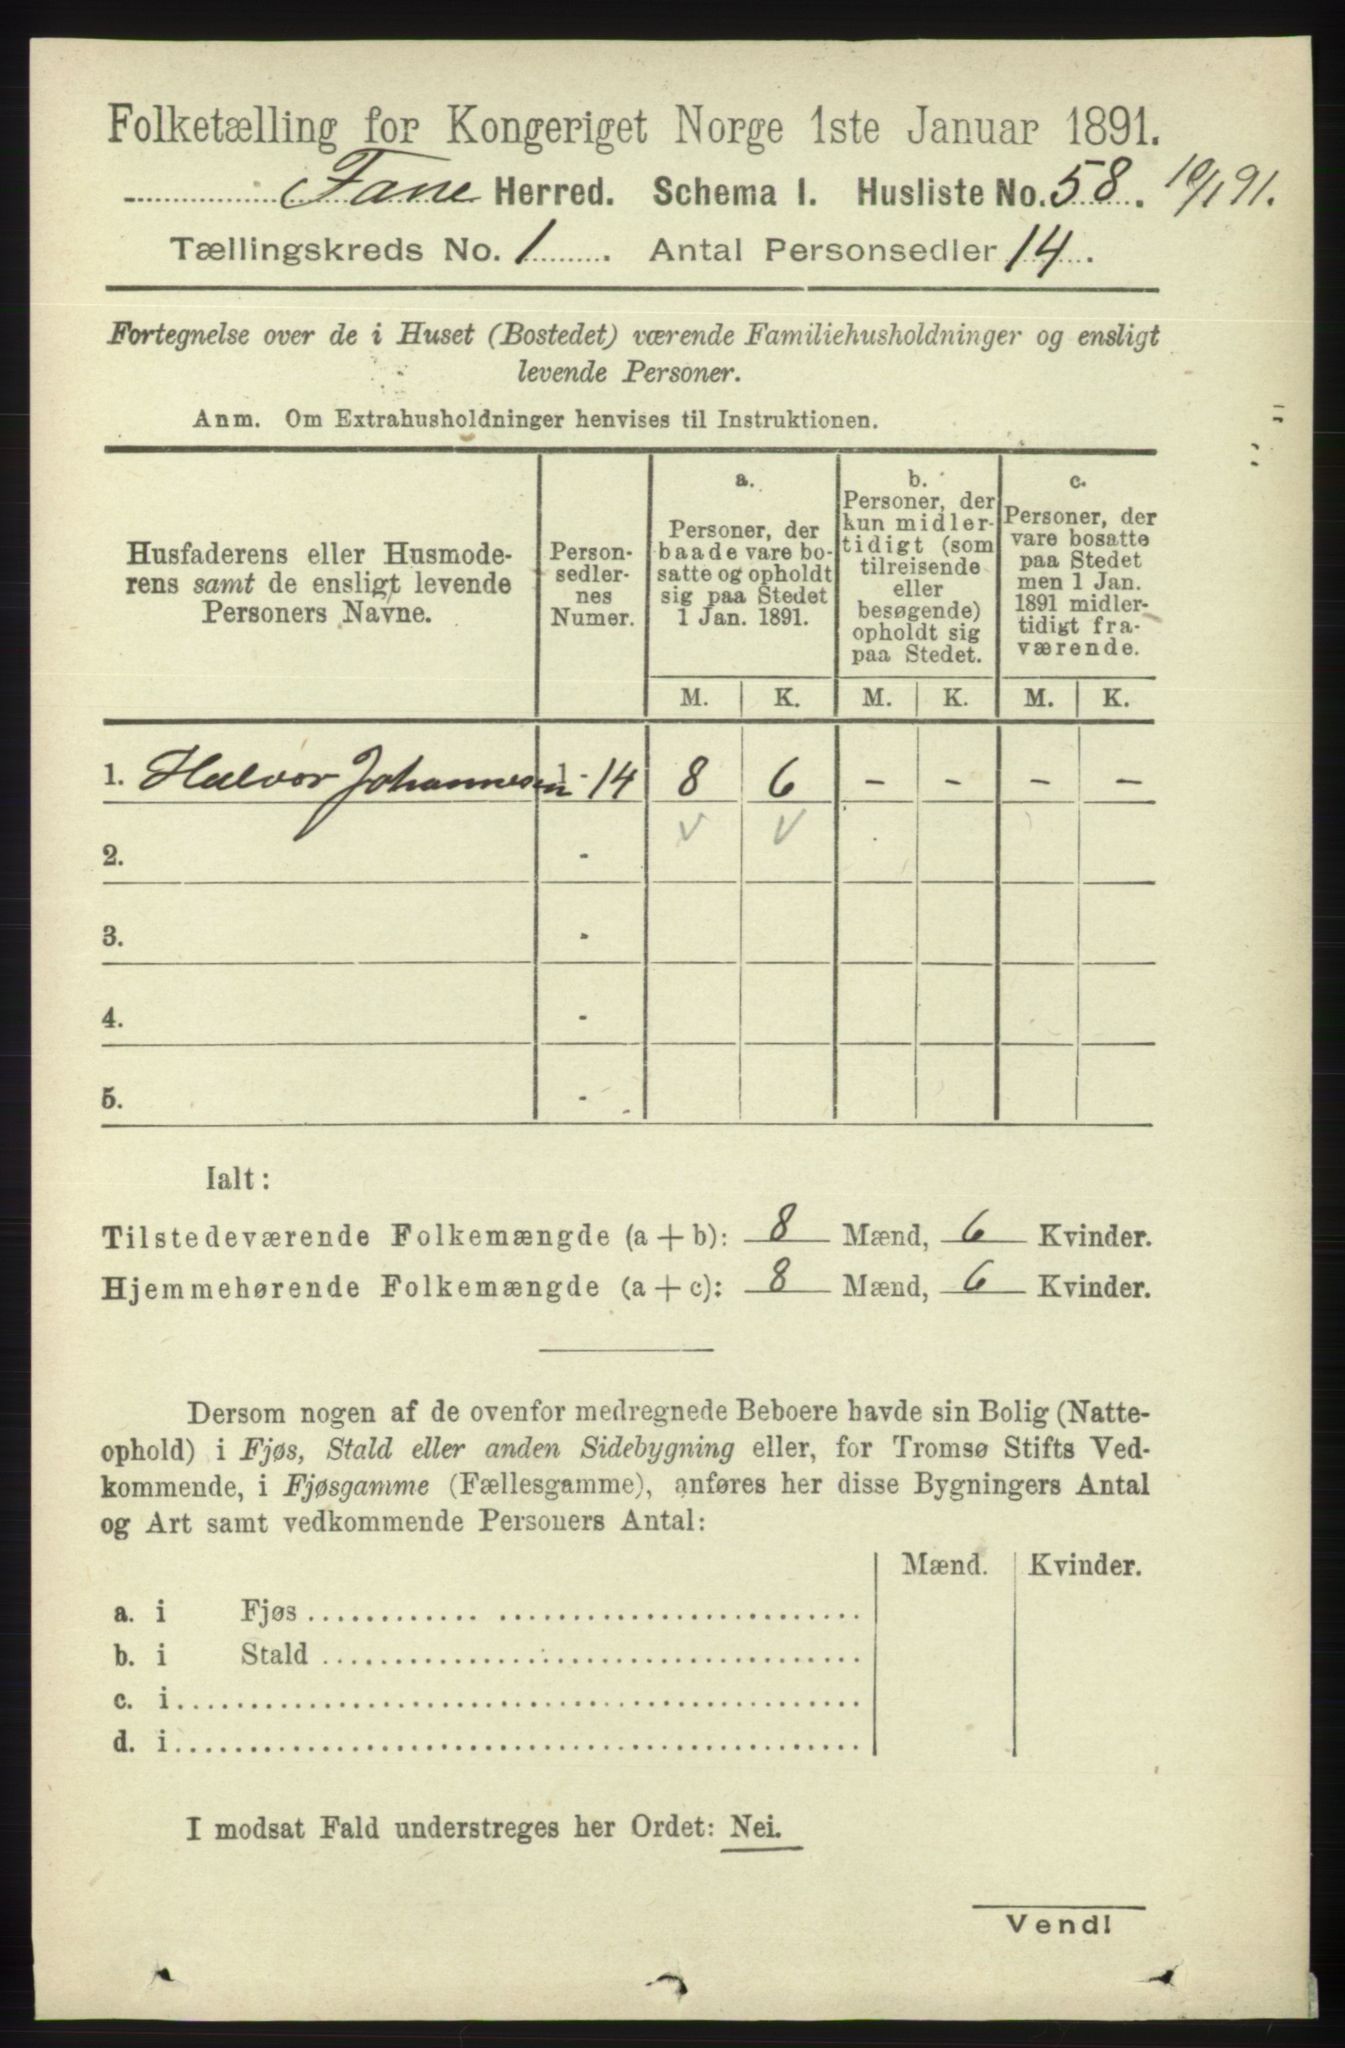 Folketælling for Kongeriget Norge 1ste Januar 1891.
Fane Herred. Schema I. Husliste No. 58. 19/1 91.
Tællingskreds No. 1. Antal Personsedler 14.
Fortegnelse over de i Huset (Bostedet) værende Familiehusholdninger og ensligt
levende Personer.
Anm. Om Extrahusholdninger henvises til Instruktionen.
Husfaderens eller Husmode-
rens samt de ensligt levende
Personers Navne.
Person-
sedler-
nes
Numer.
a.
Personer, der
baade vare bo-
satte og opholdt
sig paa Stedet
1 Jan. 1891.
b.
Personer, der
kun midler-
tidigt (som
tilreisende
eller
besøgende)
opholdt sig
paa Stedet.
c.
Personer, der
vare bosatte
paa Stedet
men 1 Jan.
1891 midler-
tidigt fra-
værende.
M. K. M. K. M. K.
1. Halvor Johannesen 1 - 14 8 6 - - - -
2. - V V
3. -
4. -
5. -
Ialt:
Tilstedeværende Folkemængde (a + b): 8 Mænd, 6 Kvinder.
Hjemmehørende Folkemængde (a + c): 8 Mænd, 6 Kvinder.
Dersom nogen af de ovenfor medregnede Beboere havde sin Bolig (Natte-
ophold) i Fjøs, Stald eller anden Sidebygning eller, for Tromsø Stifts Ved-
kommende, i Fjøsgamme (Fællesgamme), anføres her disse Bygningers Antal
og Art samt vedkommende Personers Antal:
Mænd. Kvinder.
a. i Fjøs
b. i Stald
c. i
d. i
I modsat Fald understreges her Ordet: Nei.
Vend!